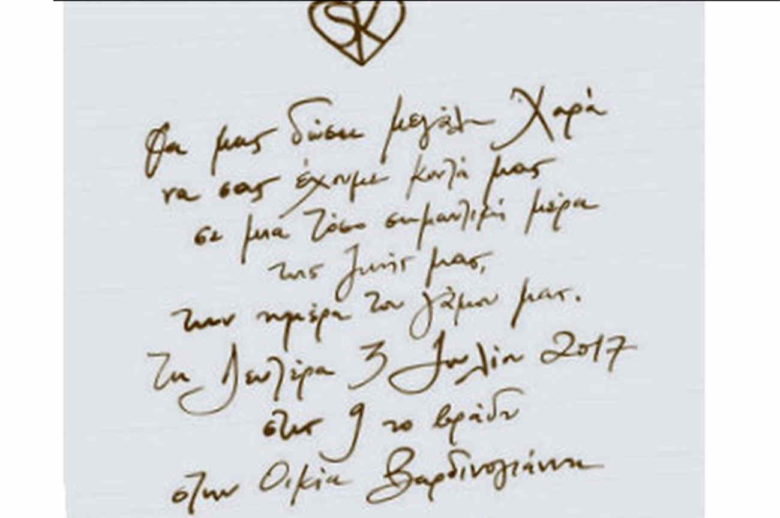 SK
Θα μας δώσει μεγάλη Χαρά
να σας έχουμε κοντά μας
σε μια τόσο σημαντική μέρα
της ζωής μας,
την ημέρα του γάμου μας.
Τη Δευτέρα 3 Ιουλίου 2017
στις 9 το βράδυ
στην Οικία Βαρδινογιάννη